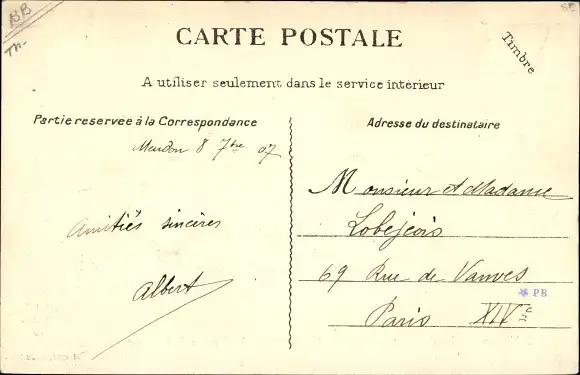 BB
Th-
CARTE POSTALE
Timbre
A utiliser seulement dans le service intérieur
Partie reservee à la Correspondance
Meudon 8 7bre 07
Amitiés sincères
Albert
Adresse du destinataire
Monsieur et Madame
Lobejois
69 Rue de Vanves
PB
Paris XIVe